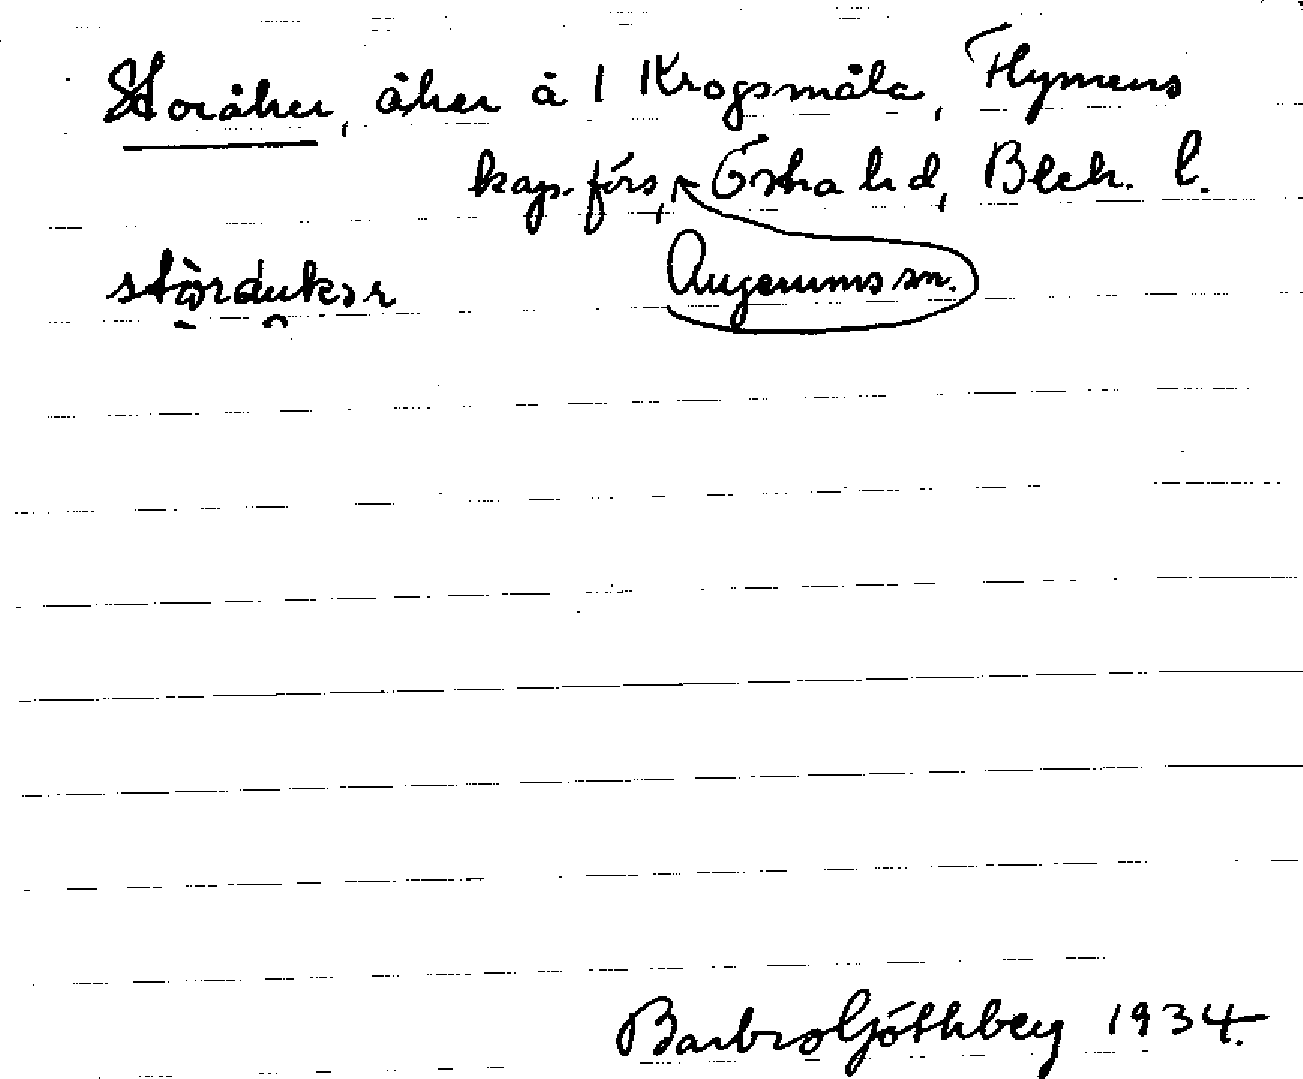 Storåker, åker å 1 Krogsmåla, Flymens
kap. förs, Östra hd, Blek. l.
Augerums sn.
Barbro Göthberg 1934.